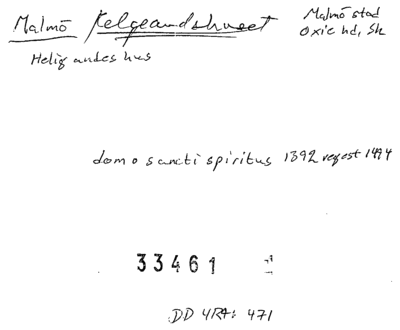 Malmö Helgeandshuset Malmö stad
Oxie hd, Sk
Heligandeshus
domo sancti spiritus 1392 regest 1494
33461
DD 4RA: 471